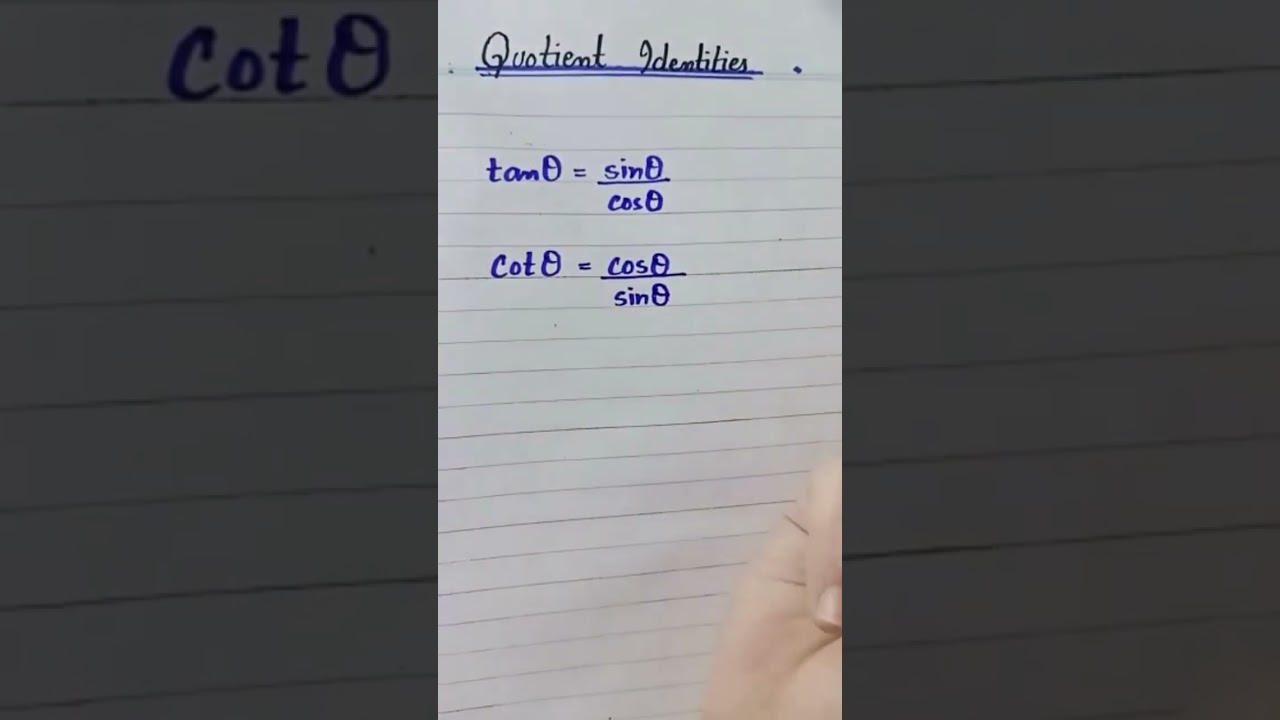 cotθ
Quotient Identities .
tanθ = sinθ
cosθ
cotθ = cosθ
sinθ